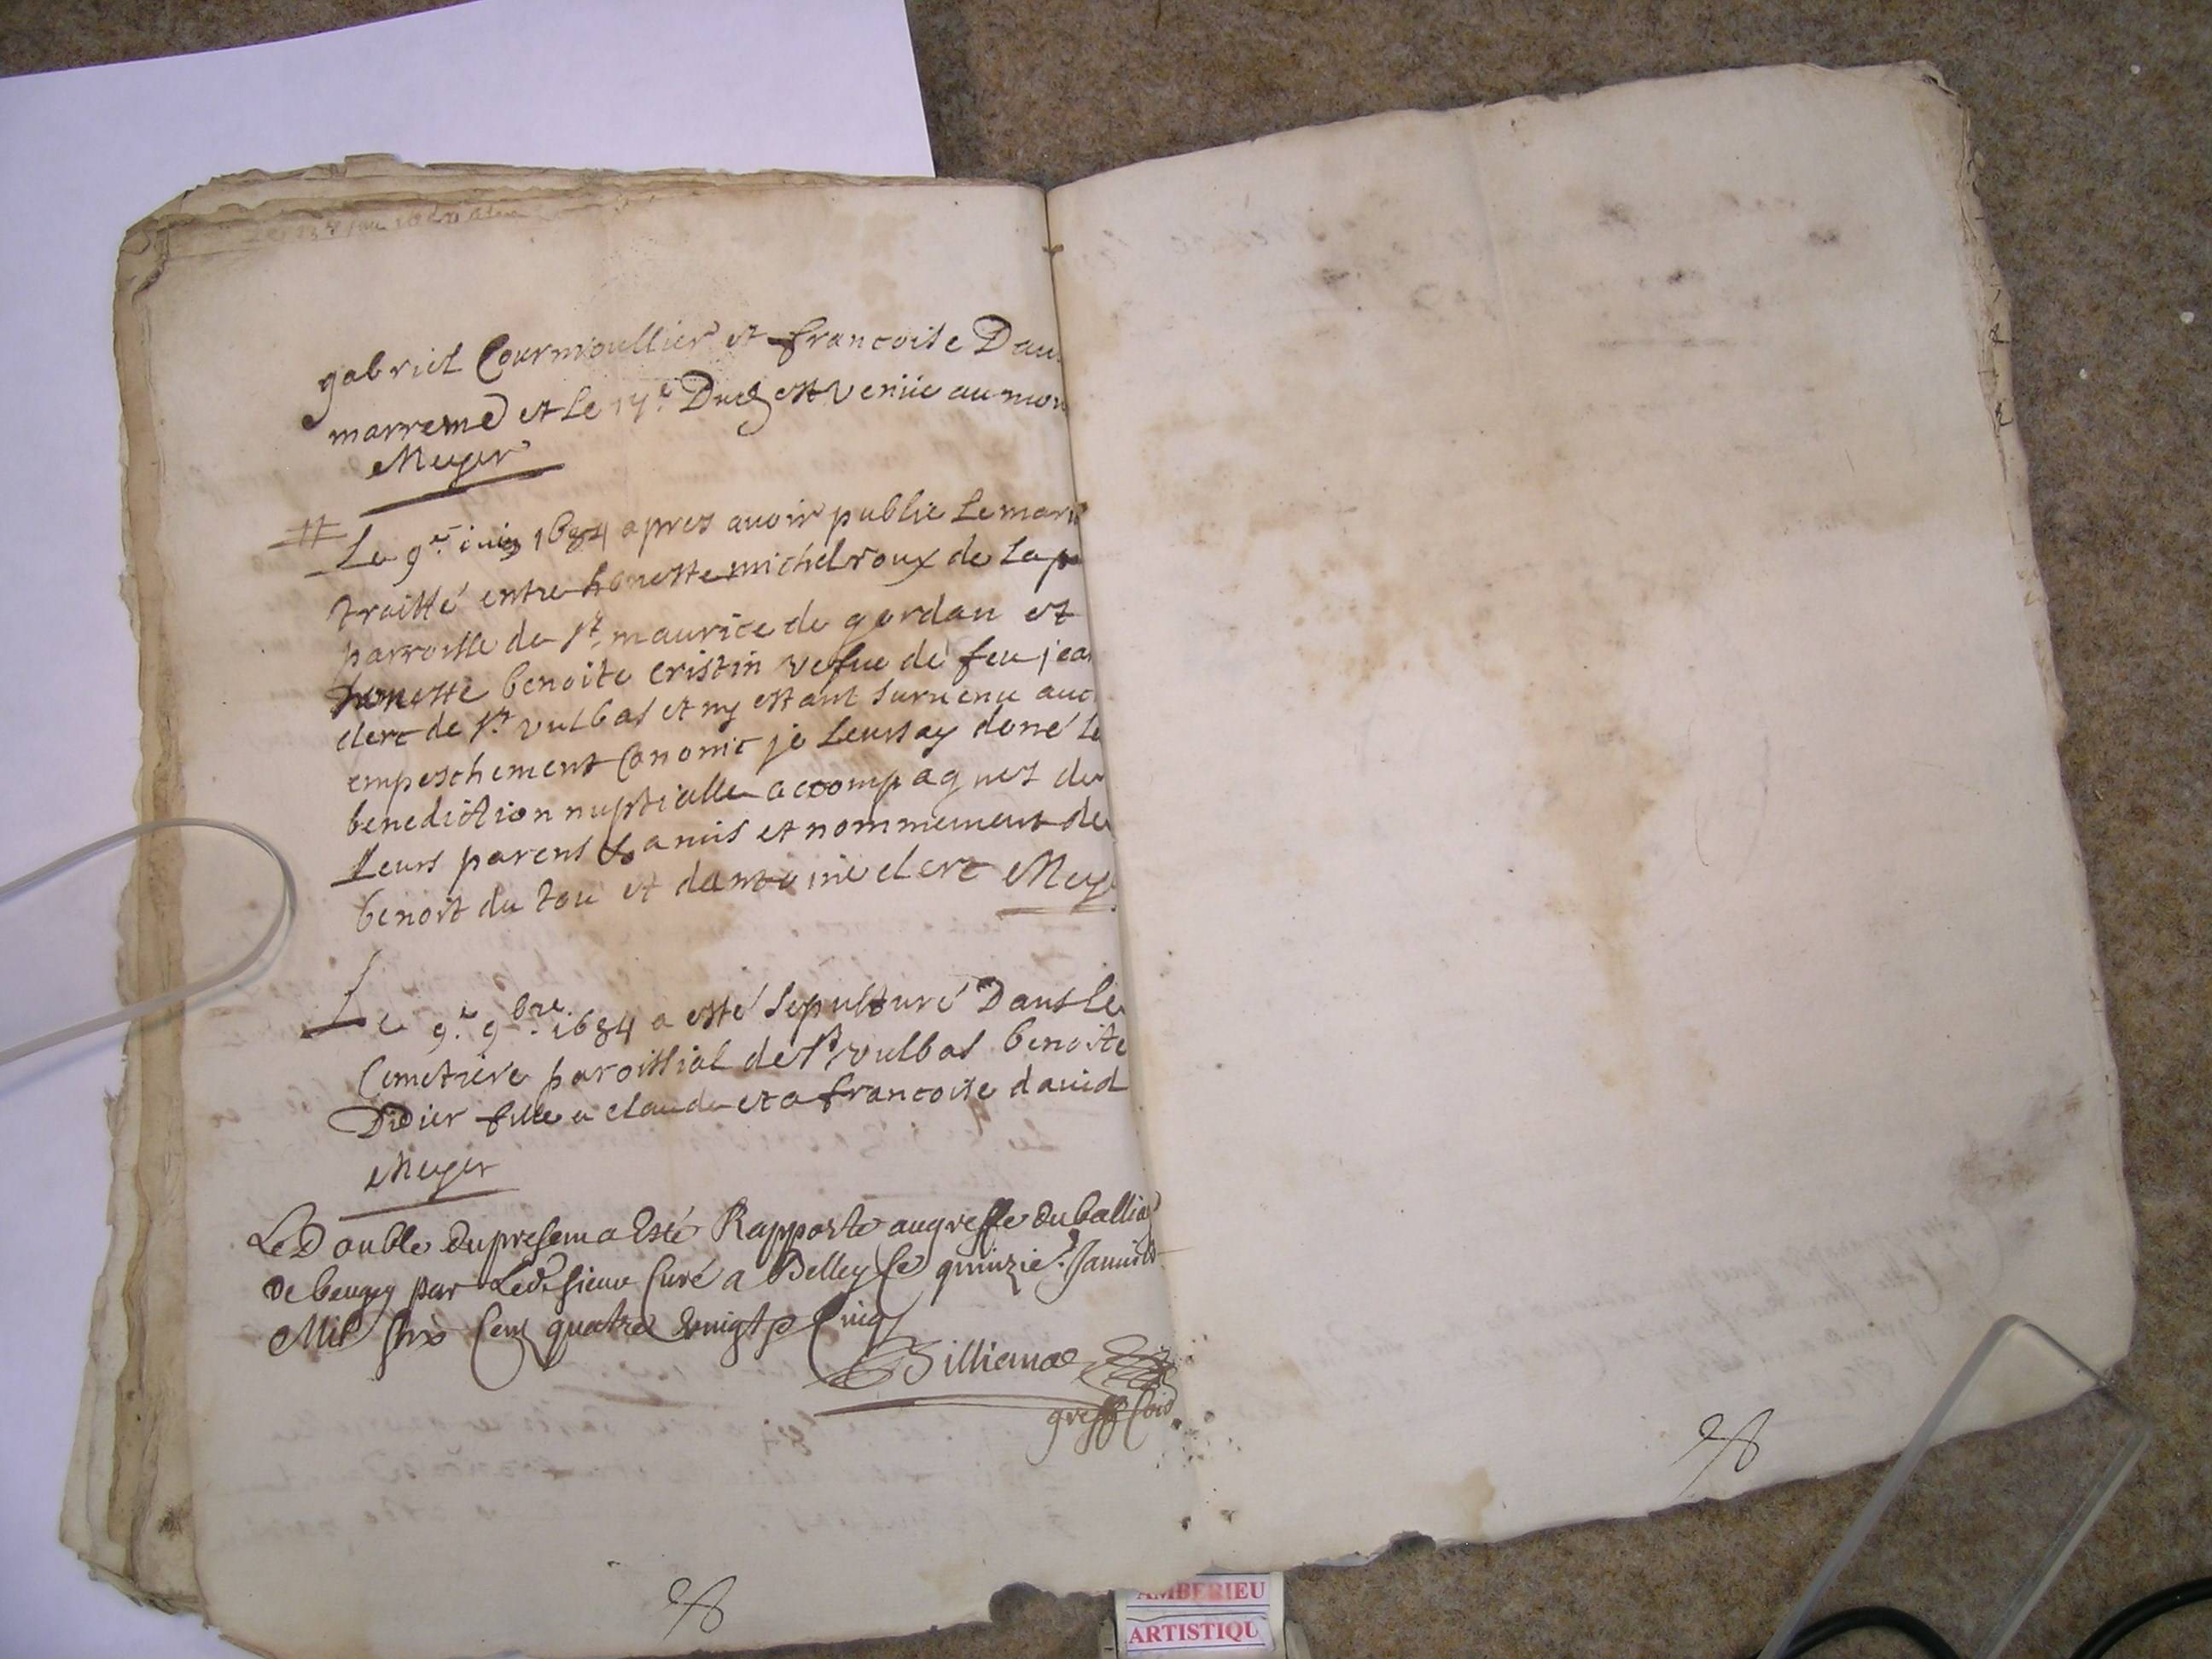 gabriel Cournioullier et francoise Dau
marreine et Le 17.e Dud est veniie au mon
Meyer
# Le 9.e iuin 1684 apres auoir publie Le mari
traitté entre honeste michel roux de La p
parroisse de st. maurice de gordan et
honeste benoite cristin vefue de feu jea
clerc de st. vulbas et ny estant suruenu auc
empeschement Canonic je Leurs ay doné la
benediction nuptialle accompagnes de
Leurs parens & amis et nommement de
benoit du tou et dantoine clerc Mey
Le 9.e 9.bre 1684 a esté sepulturé Dans le
Cemetiere paroissial de st. vulbas benoite
Didier fille a claude et a francoise dauid
Meyer
Le Double du presem a Esté Rapporte au greffe du Ballia
de beugey par Led. sieur Curé a Belley le quinzie. Januier
Mil six Cens quatre vingt Cinq
Billiema
greff
AMBERIEU
ARTISTIQU